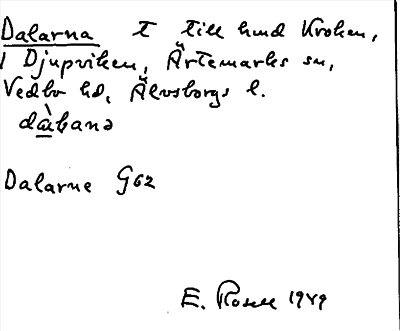 Dalarna t till hmd Kroken,
i Djupviken, Ärtemarks sn,
Vedbo hd, Älvsborgs l.
Dalarne G62
E. Rosell 1949